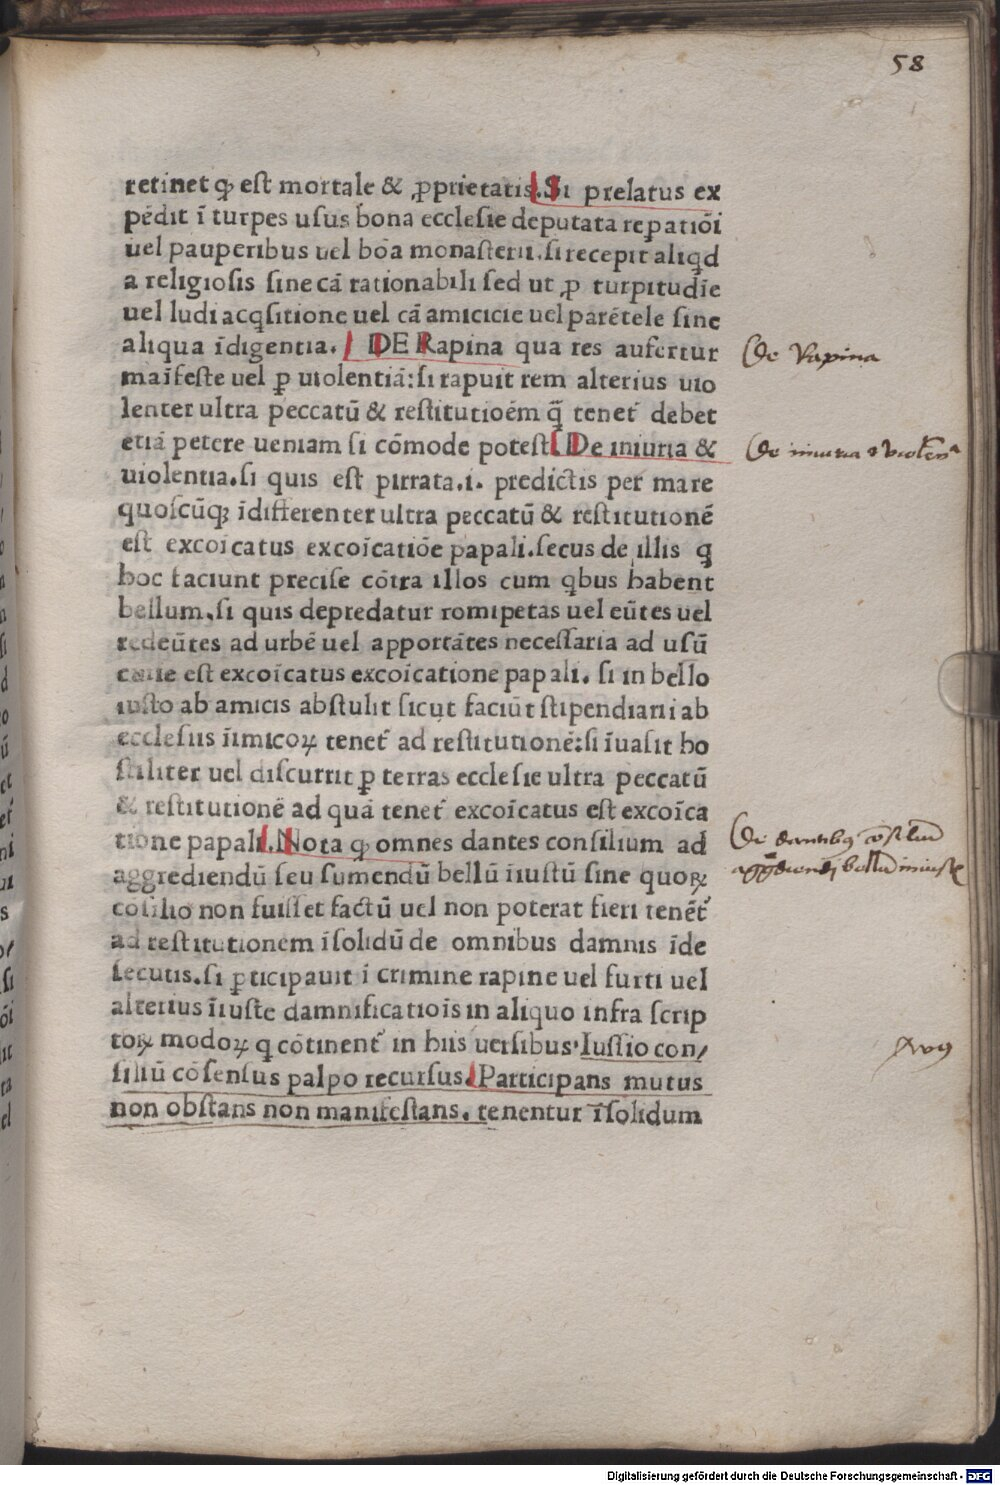 58
retinet ꝙ est mortale & ꝓprietatis. Si prelatus ex
pēdit ī turpes usus bona ecclesie deputata reꝑatiōi
uel pauperibus uel boa monasterii. si recepit aliqd
a religiosis sine cā rationabili sed ut ꝓ turpitudīe
uel ludi acqsitione uel cā amicicie uel parētele sine
aliqua īdigentia. DE Rapina qua res aufertur
maīfeste uel ꝑ uiolentiā: si rapuit rem alterius uio
lenter ultra peccatū & restitutioēm q̄ tenet᷑ debet
etiā petere ueniam si cōmode potest De iniuria &
uiolentia. si quis est pirrata .i. predictis per mare
quoscūqꝫ īdifferenter ultra peccatū & restitutionē
est excoīcatus excoīcatiōe papali. secus de illis q
hoc faciunt precise cōtra illos cum qbus habent
bellum. si quis depredatur romipetas uel eūtes uel
redeūtes ad urbē uel apportātes necessaria ad usū
curie est excoīcatus excoīcatione papali. si in bello
iusto ab amicis abstulit sicut faciūt stipendiarii ab
ecclesiis īimicoꝝ tenet᷑ ad restitutionē: si īuasit ho
stiliter uel discurrit ꝑ terras ecclesie ultra peccatū
& restitutionē ad quā tenet᷑ excoīcatus est excoīca
tione papali. Nota ꝙ omnes dantes consilium ad
aggrediendū seu sumendū bellū īiustū sine quoꝝ
cōsilio non fuisset factū uel non poterat fieri tenēt᷑
ad restitutionem īsolidū de omnibus damnis īde
secutis. si ꝑticipauit ī crimine rapine uel furti uel
alterius īiuste damnificatiōis in aliquo infra scrip
toꝝ modoꝝ q cōtinent᷑ in hiis uersibus. Iussio con/
siliū cōsensus palpo recursus. Participans mutus
non obstans non manifestans. tenentur īsolidum
De Rapina
De iniuria & violen^a
De dantibꝰ cōsiliū
bellū iniuste
Digitalisierung gefördert durch die Deutsche Forschungsgemeinschaft - DFG